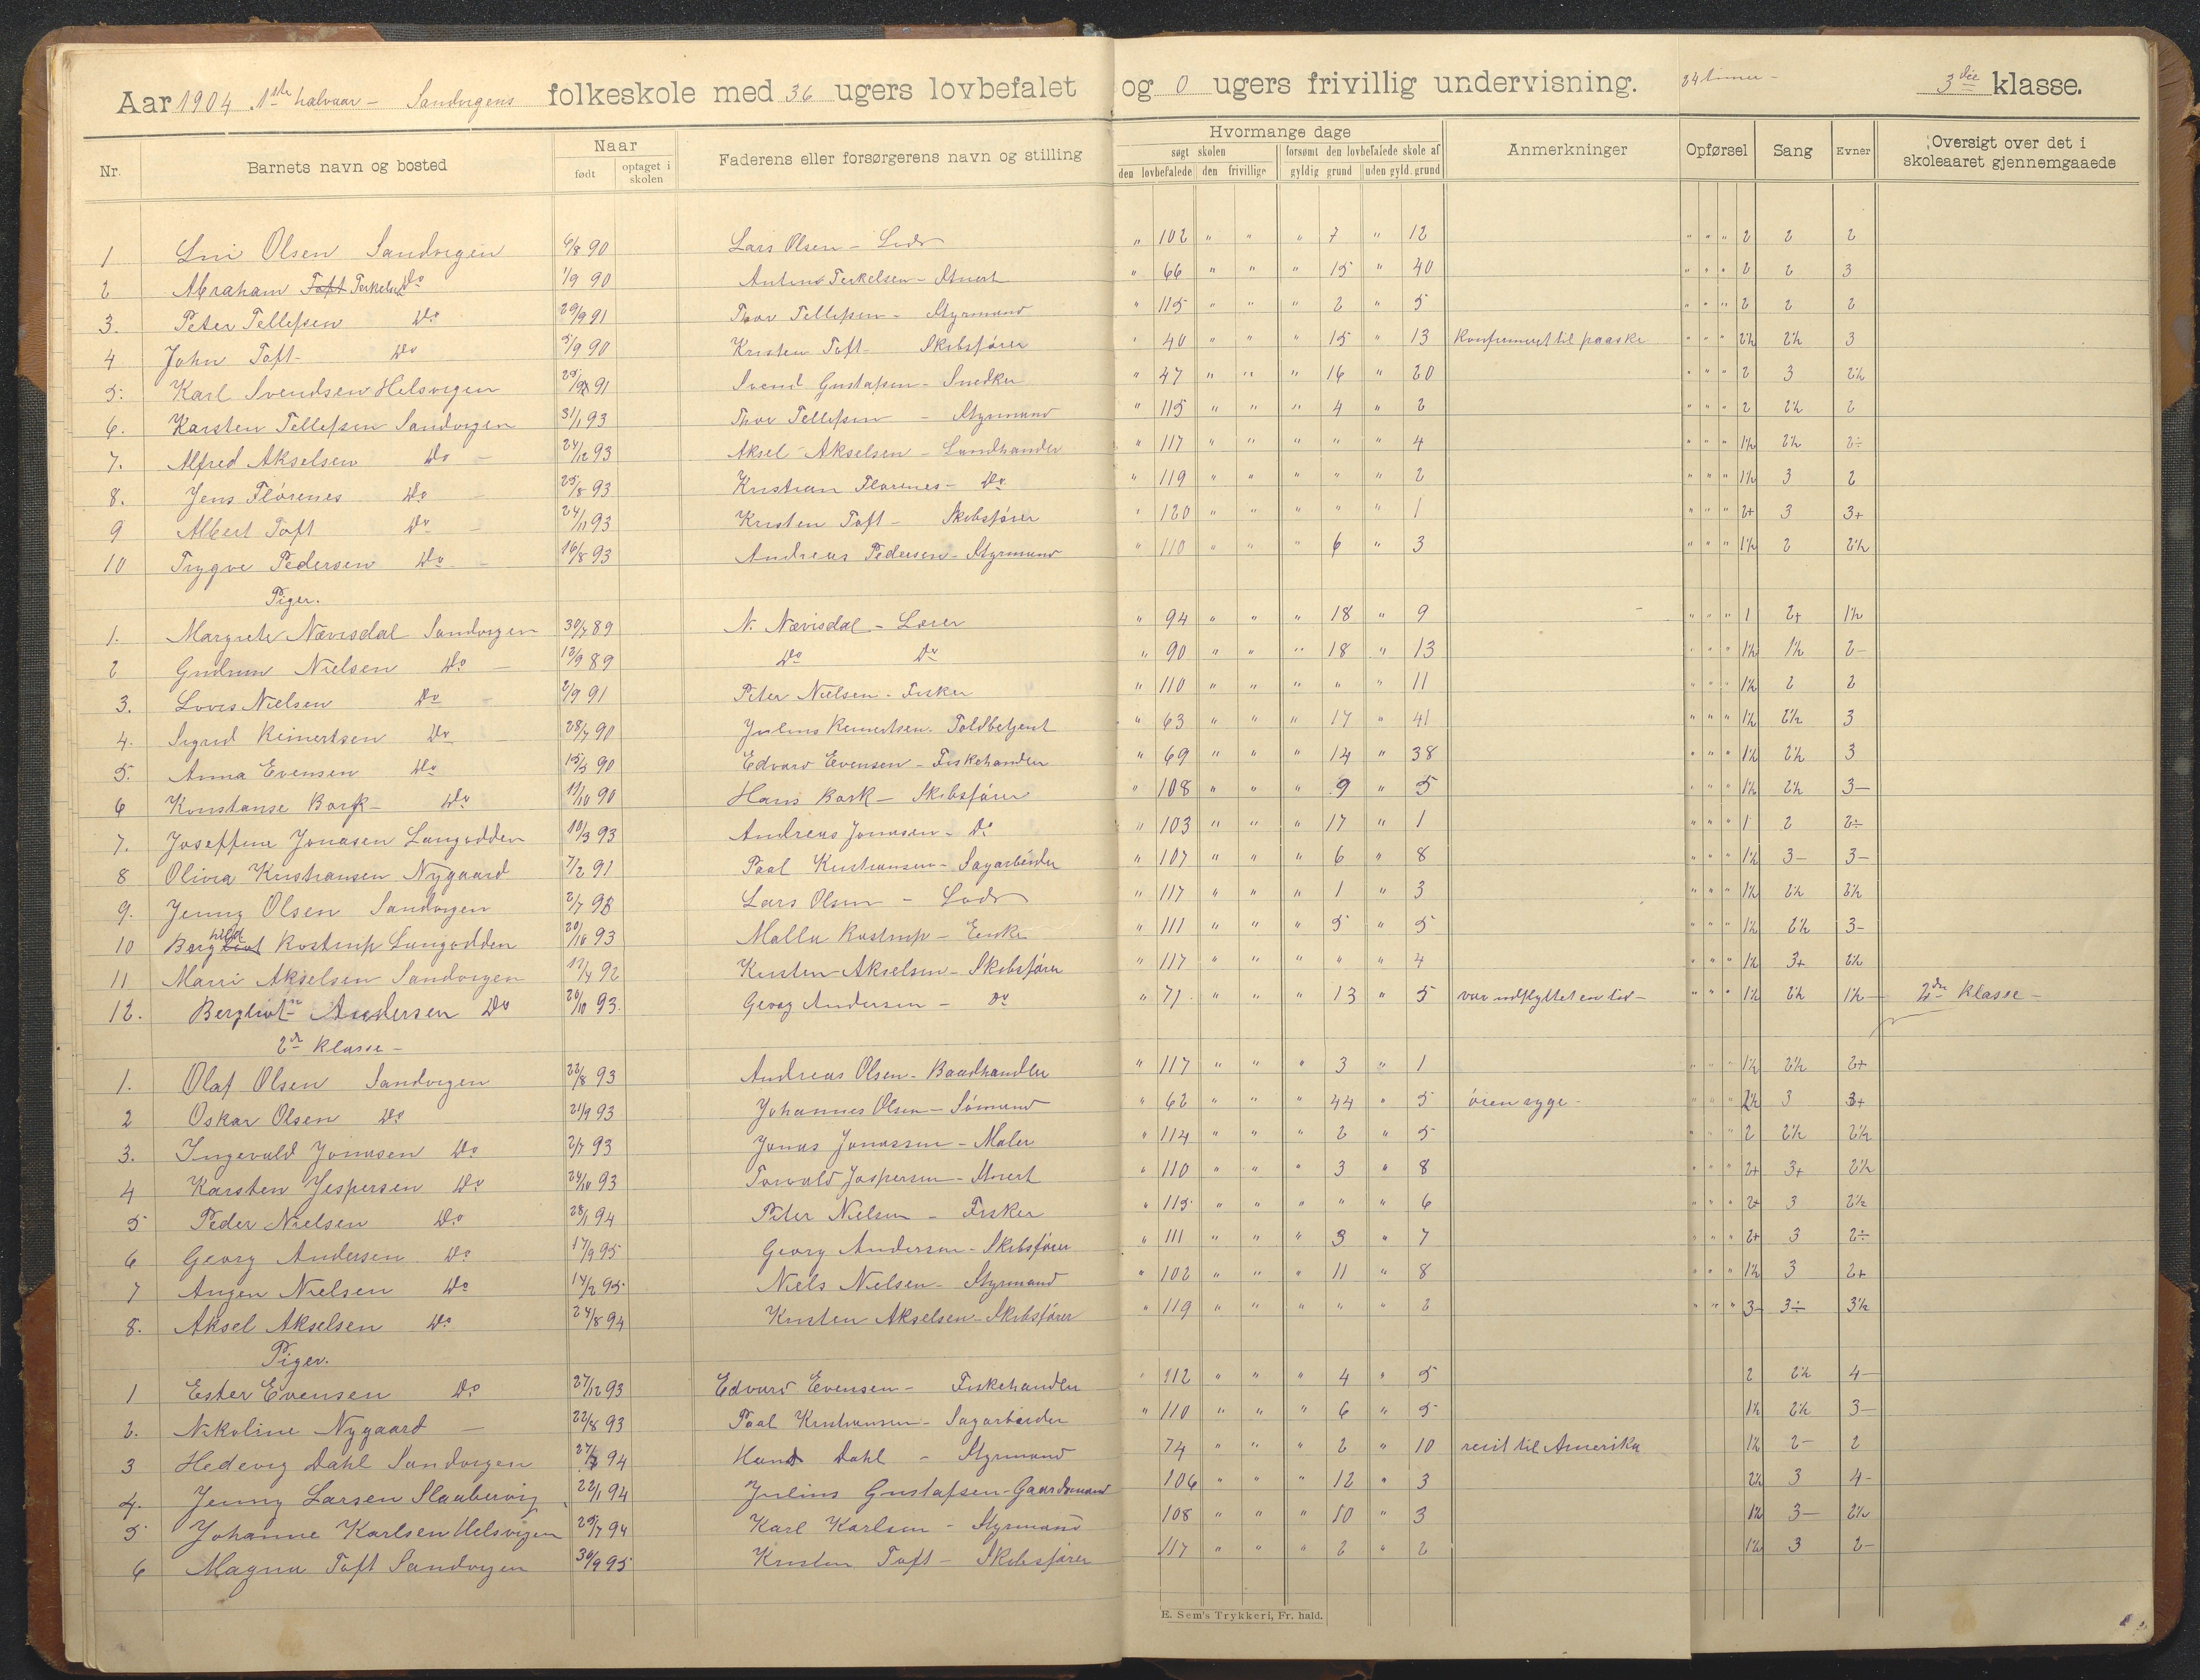 Aar 1904 1ste halvaar - Sandvigens folkeskole med 36 ugers lovbefalet og 0 ugers frivillig undervisning. 24 timer - 3die klasse.
Nr. Barnets navn og bosted Naar født optaget i skolen Faderens eller forsørgerens navn og stilling Hvormange dage søgt skolen den lovbefalede den frivillige forsømt den lovbefalede skole af gyldig grund uden gyld. grund Anmerkninger Opførsel Sang Evner Oversigt over det i skoleaaret gjennemgaaede
1 Olsen Sandvigen 6/8 90 Lars Olsen - Lods " 102 " " " 7 " 12 " " " 2 2 2
2 Abraham Toft Terkelsen Do 1/9 90 Terkelsen - Stuert " 66 " " " 15 " 40 " " " 2 2 3
3. Peter Tellefsen Do 29/9 91 Thor Tellefsen - Styrmand " 115 " " " 2 " 5 " " " 2 2 2
4 John Toft - Do 5/9 90 Kristen Toft - Skibsfører " 40 " " " 15 " 13 Konfirmert til paaske " " " 2½ 2½ 3
5. Karl Svendsen Helsvigen 91 Svend Gustafsen - Snedker " 47 " " " 16 " 20 " " " 2 3 2½
6. Karsten Tellefsen Sandvigen 31/1 93 Thor Tellefsen - Styrmand " 115 " " " 4 " 2 " " " 2 2½ 2
7. Alfred Akselsen Do - 24/12 93 Aksel Akselsen - Landhandler " 117 " " " " " 4 " " " 1½ 2½ 2÷
8. Jens Flørenes Do - 25/8 93 Kristian Flørenes - Do " 119 " " " " " 2 " " " 1½ 3 2
9 Albert Toft Do - 24/11 93 Kristen Toft - Skibsfører " 120 " " " " " 1 " " " 2+ 3 3+
10 Trygve Pedersen Do - 16/8 93 Andreas Pedersen - Styrmand " 110 " " " 6 " 3 " " " 1½ 2 2½
Piger.
1. Margrete Nævisdal Sandvigen 30/7 89 N. Nævisdal - Lærer " 94 " " " 18 " 9 " " " 1 2+ 1½
2 Gudrun Nielsen Do - 12/9 89 Do Do " 90 " " " 18 " 13 " " " 1½ 1½ 2-
3. Lovis Nielsen Do - 2/9 91 Peter Nielsen - Fisker " 110 " " " " " 11 " " " 1½ 2 2
4. Sigrid Reinertsen Do - 28/7 90 Julius Reinertsen - Toldbetjent " 63 " " " 17 " 41 " " " 1½ 2½ 3
5. Anna Evensen Do 15/3 90 Edvard Evensen - Fiskehandler " 69 " " " 14 " 38 " " " 1½ 2½ 3
6 Konstanse Bork - Do 19/10 90 Hans Bork - Skibsfører " 108 " " " 9 " 5 " " " 1½ 2½ 3-
7. Joseffine Jonasen Langodden 10/3 93 Andreas Jonasen - Do " 103 " " " 17 " 1 " " " 1 2 2÷
8 Olivia Kristiansen Nygaard 7/2 91 Paal Kristiansen - Sagarbeider " 107 " " " 6 " 8 " " " 1½ 3- 3-
9. Jenny Olsen Sandvigen 2/7 93 Lars Olsen - Lods " 117 " " " 1 " 3 " " " 1½ 2½ 2½
10 Berghild Rostrup Langodden 20/10 93 Malla Rostrup - Enke " 111 " " " 5 " 5 " " " 1½ 2½ 3-
11 Marri Akselsen Sandvigen 17/4 92 Kristen Akselsen - Skibsfører " 117 " " " " " 4 " " " 1½ 3+ 2½
12. Bergliot Andersen Do 26/10 93. Georg Andersen - Do " 71 " " " 13 " 5 var udflyttet en tid - " " " 1½ 2½ 1½- 2den klasse -
2den klasse -
1. Olaf Olsen Sandvigen 22/8 93 Andreas Olsen - Baadhandler " 117 " " " 3 " 1 " " " 1½ 2½ 2+
2 Oskar Olsen Do 21/9 93 Johannes Olsen - Sømand " 62 " " " 44 " 5 øiensyge - " " " 2½ 3 3+
3. Ingevald Jonasen Do 2/7 93 Jonas Jonassen - Maler " 114 " " " 2 " 5 " " " 2 2½ 2½
4 Karsten Jespersen Do 24/10 93 Torvald Jespersen - Stuert " 110 " " " 3 " 8 " " " 2+ 3+ 2½
5 Peder Nielsen Do 28/1 94 Peter Nielsen - Fisker " 115 " " " " " 6 " " " 2+ 3 2½
6 Georg Andersen Do 17/9 95 Georg Andersen - Skibsfører " 111 " " " 3 " 7 " " " 2+ 3 2÷
7 Angen Nielsen Do 14/2 95 Niels Nielsen - Styrmand " 102 " " " 11 " 8 " " " 1½ 3 2+
8. Aksel Akselsen Do 24/8 94 Kristen Akselsen - Skibsfører " 119 " " " " " 2 " " " 3- 3÷ 3½
Piger.
1 Ester Evensen Do 27/12 93 Edvard Evensen - Fiskehandler " 112 " " " 4 " 5 2 2½ 4-
2. Nikoline Nygaard - 22/8 93 Paal Kristiansen - Sagarbeider " 110 " " " 6 " 5 1½ 2½ 3-
3 Hedevig Dahl Sandvigen 94 Hans Dahl - Styrmand 74 " " " 2 " 10 reist til Amerika 1½ 2- 2
4. Jenny Larsen Slaabervig 22/1 94 Julius Gustafsen - Gaardmand 106 " " " 12 " 3 2½ 3 4-
5 Johanne Karlsen Helsvigen 25/7 94 Karl Karlsen - Styrmand 108 " " " 10 " 3 1½ 3- 2½
6 Magna Toft Sandvigen 30/9 95 Kristen Toft - Skibsfører 117 " " " 2 " 2 1½ 3 2-
E. Sem's Trykkeri, Fr. hald.